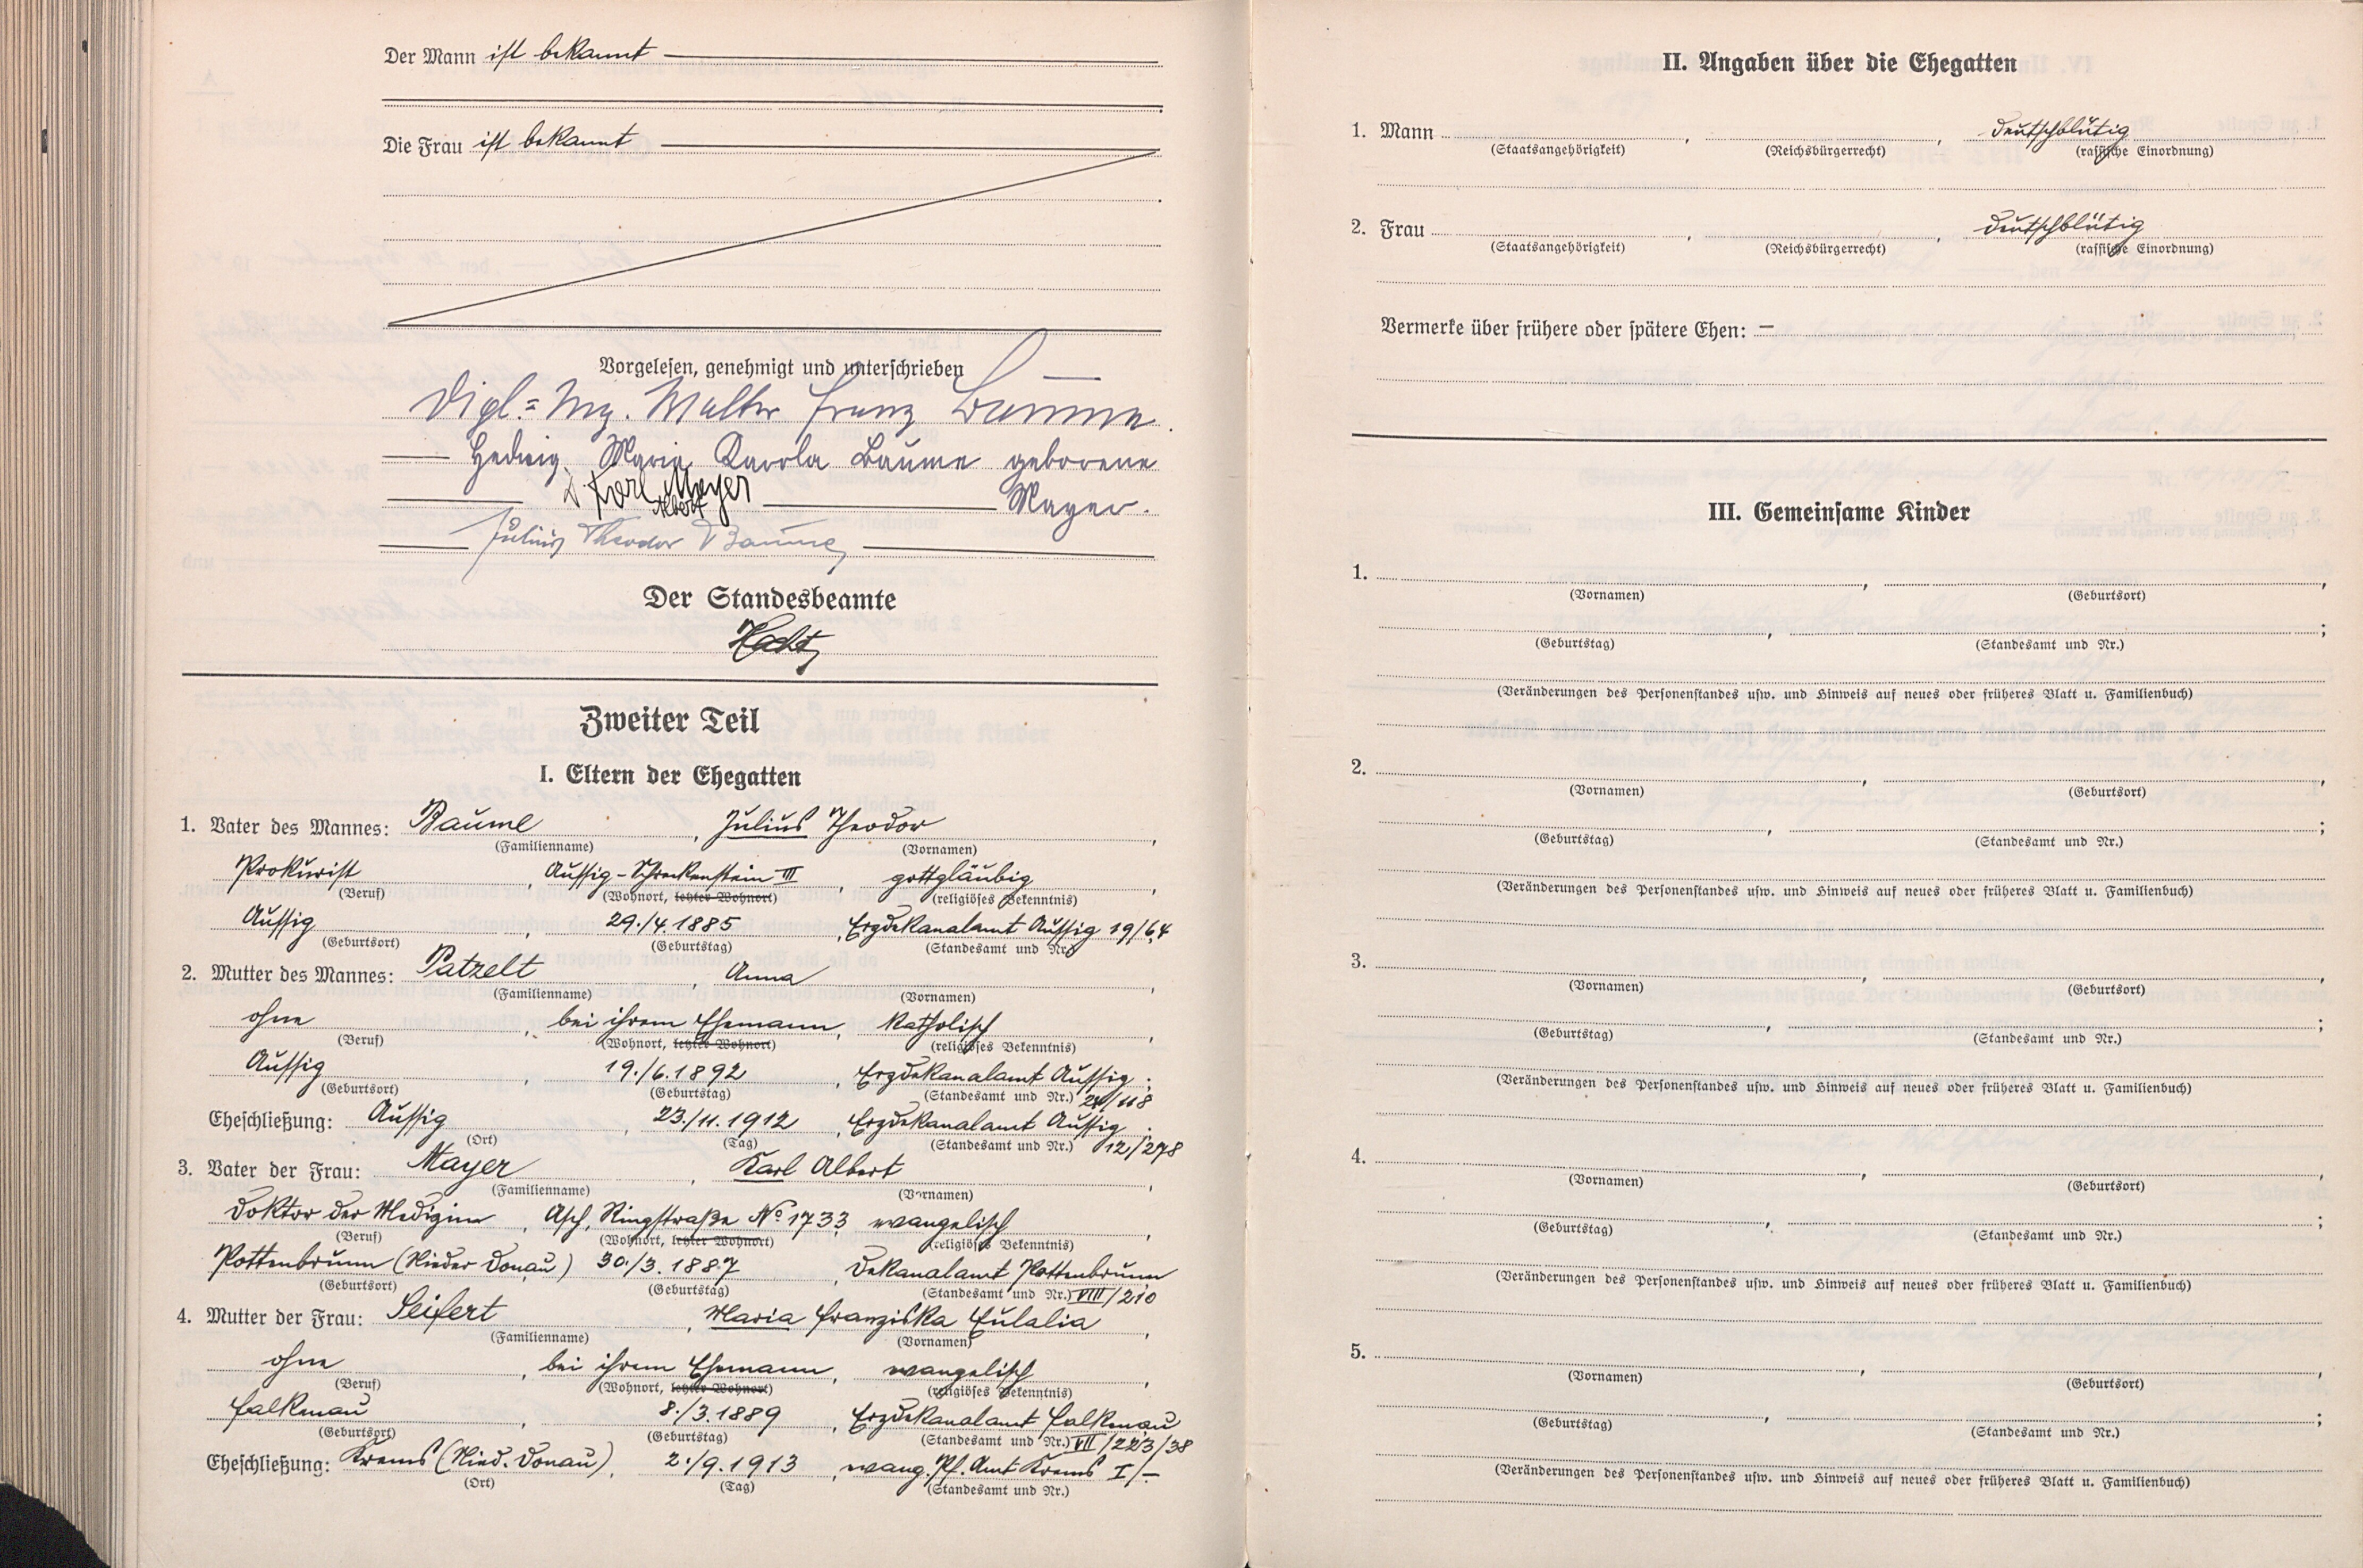 Der Mann ist bekannt
Die Frau ist bekannt
Vorgelesen, genehmigt und unterschrieben
Dipl.=Ing. Walter Franz Baume
Hedwig Maria Karola Baume geborene
Dr Karl Mayer Mayer.
Albert
Julius Theodor Baume
Der Standesbeamte
Zweiter Teil
I. Eltern der Ehegatten
1. Vater des Mannes: Baume, Julius Theodor,
(Familienname) (Vornamen)
Prokurist, Aussig-Schreckenstein III, gottgläubig,
(Beruf) (Wohnort, letzter Wohnort) (religiöses Bekenntnis)
Aussig, 29./4.1885, Erzdekanalamt Aussig 19/64
(Geburtsort) (Geburtstag) (Standesamt und Nr.)
2. Mutter des Mannes: Patzelt, Anna,
(Familienname) (Vornamen)
ohne, bei ihrem Ehemann, katholisch,
(Beruf) (Wohnort, letzter Wohnort) (religiöses Bekenntnis)
Aussig, 19./6.1892, Erzdekanalamt Aussig;
(Geburtsort) (Geburtstag) (Standesamt und Nr.) /118
Eheschließung: Aussig, 23./11.1912, Erzdekanalamt Aussig;
(Ort) (Tag) (Standesamt und Nr.) 12/278
3. Vater der Frau: Mayer, Karl Albert,
(Familienname) (Vornamen)
Doktor der Medizin, Asch, Ringstraße No 1733 evangelisch,
(Beruf) (Wohnort, letzter Wohnort) (religiöses Bekenntnis)
Pottenbrunn (Nieder Donau) 30./3.1887, Dekanalamt Pottenbrunn
(Geburtsort) (Geburtstag) (Standesamt und Nr.) VIII/210
4. Mutter der Frau: Seifert, Maria Franziska Eulalia,
(Familienname) (Vornamen)
ohne, bei ihrem Ehemann, evangelisch,
(Beruf) (Wohnort, letzter Wohnort) (religiöses Bekenntnis)
Falkenau, 8./3.1889, Erzdekanalamt Falkenau
(Geburtsort) (Geburtstag) (Standesamt und Nr.) VII/223/38
Eheschließung: Krems (Nied. Donau), 2./9.1913, evang. Pf. Amt Krems I/-
(Ort) (Tag) (Standesamt und Nr.)
II. Angaben über die Ehegatten
1. Mann, , deutschblütig
(Staatsangehörigkeit) (Reichsbürgerrecht) (rassische Einordnung)
2. Frau, , deutschblütig
(Staatsangehörigkeit) (Reichsbürgerrecht) (rassische Einordnung)
Vermerke über frühere oder spätere Ehen: –
III. Gemeinsame Kinder
1. , ,
(Vornamen) (Geburtsort)
, ;
(Geburtstag) (Standesamt und Nr.)
(Veränderungen des Personenstandes usw. und Hinweis auf neues oder früheres Blatt u. Familienbuch)
2. , ,
(Vornamen) (Geburtsort)
, ;
(Geburtstag) (Standesamt und Nr.)
(Veränderungen des Personenstandes usw. und Hinweis auf neues oder früheres Blatt u. Familienbuch)
3. , ,
(Vornamen) (Geburtsort)
, ;
(Geburtstag) (Standesamt und Nr.)
(Veränderungen des Personenstandes usw. und Hinweis auf neues oder früheres Blatt u. Familienbuch)
4. , ,
(Vornamen) (Geburtsort)
, ;
(Geburtstag) (Standesamt und Nr.)
(Veränderungen des Personenstandes usw. und Hinweis auf neues oder früheres Blatt u. Familienbuch)
5. , ,
(Vornamen) (Geburtsort)
, ;
(Geburtstag) (Standesamt und Nr.)
(Veränderungen des Personenstandes usw. und Hinweis auf neues oder früheres Blatt u. Familienbuch)